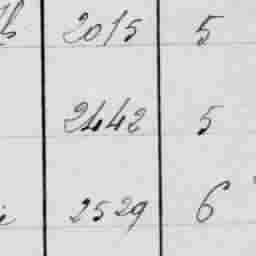 2015 5
2442 5
2529 6